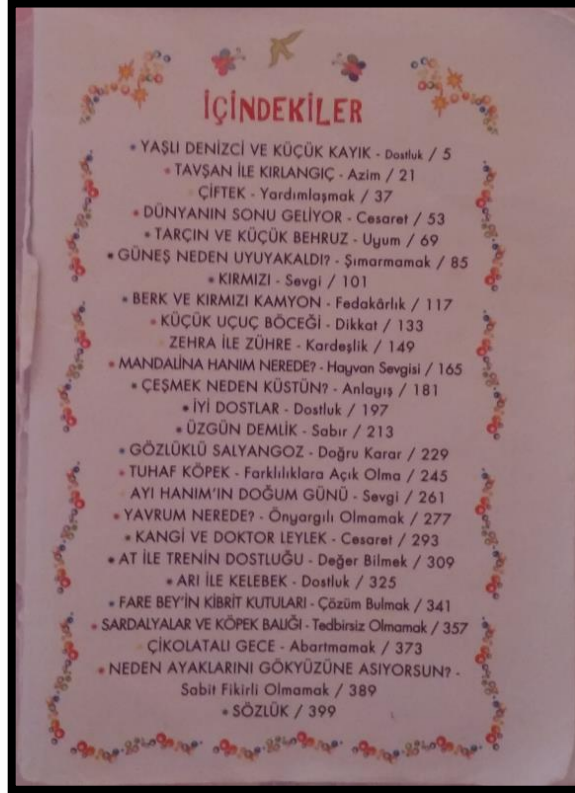 İÇİNDEKİLER
• YAŞLI DENİZCİ VE KÜÇÜK KAYIK - Dostluk / 5
• TAVŞAN İLE KIRLANGIÇ - Azim / 21
• ÇİFTEK - Yardımlaşmak / 37
• DÜNYANIN SONU GELİYOR - Cesaret / 53
• TARÇIN VE KÜÇÜK BEHRUZ - Uyum / 69
• GÜNEŞ NEDEN UYUYAKALDI? - Şımarmamak / 85
• KIRMIZI - Sevgi / 101
• BERK VE KIRMIZI KAMYON - Fedakârlık / 117
• KÜÇÜK UÇUÇ BÖCEĞİ - Dikkat / 133
• ZEHRA İLE ZÜHRE - Kardeşlik / 149
• MANDALİNA HANIM NEREDE? - Hayvan Sevgisi / 165
• ÇEŞMEK NEDEN KÜSTÜN? - Anlayış / 181
• İYİ DOSTLAR - Dostluk / 197
• ÜZGÜN DEMLİK - Sabır / 213
• GÖZLÜKLÜ SALYANGOZ - Doğru Karar / 229
• TUHAF KÖPEK - Farklılıklara Açık Olma / 245
• AYI HANIM'IN DOĞUM GÜNÜ - Sevgi / 261
• YAVRUM NEREDE? - Önyargılı Olmamak / 277
• KANGİ VE DOKTOR LEYLEK - Cesaret / 293
• AT İLE TRENİN DOSTLUĞU - Değer Bilmek / 309
• ARI İLE KELEBEK - Dostluk / 325
• FARE BEY'İN KİBRİT KUTULARI - Çözüm Bulmak / 341
• SARDALYALAR VE KÖPEK BALIĞI - Tedbirsiz Olmamak / 357
• ÇİKOLATALI GECE - Abartmamak / 373
• NEDEN AYAKLARINI GÖKYÜZÜNE ASIYORSUN? -
Sabit Fikirli Olmamak / 389
• SÖZLÜK / 399